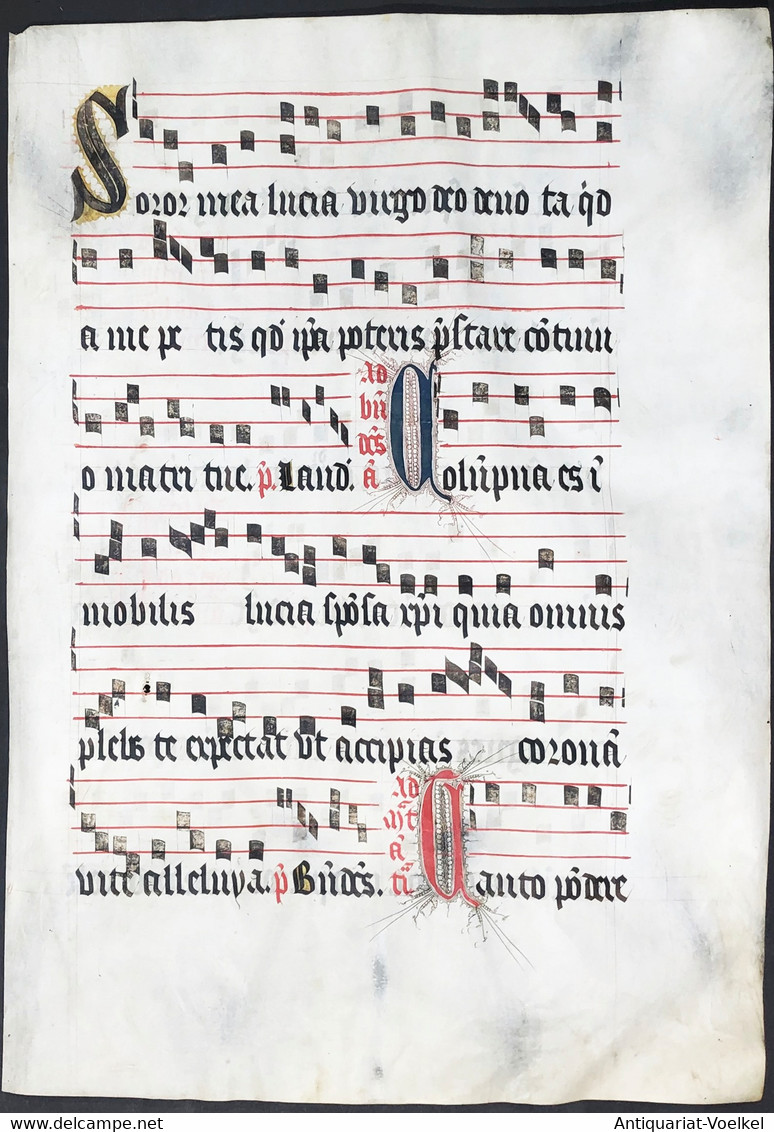 Soror mea lucia virgo deo deuo ta qd̄
a me pe tis qd̄ ip̄a poteris p̄stare cōtinu
o matri tue. p̄. Laud. Ad bn̄ dc̄s ā Colūpna es ī
mobilis lucia spōsa xp̄i quia omnis
plebs te expectat vt accipias coronā
vite alleluya. p̄ Bn̄dc̄s. Ad ā Tanto pōdere
Antiquariat-Voelkel